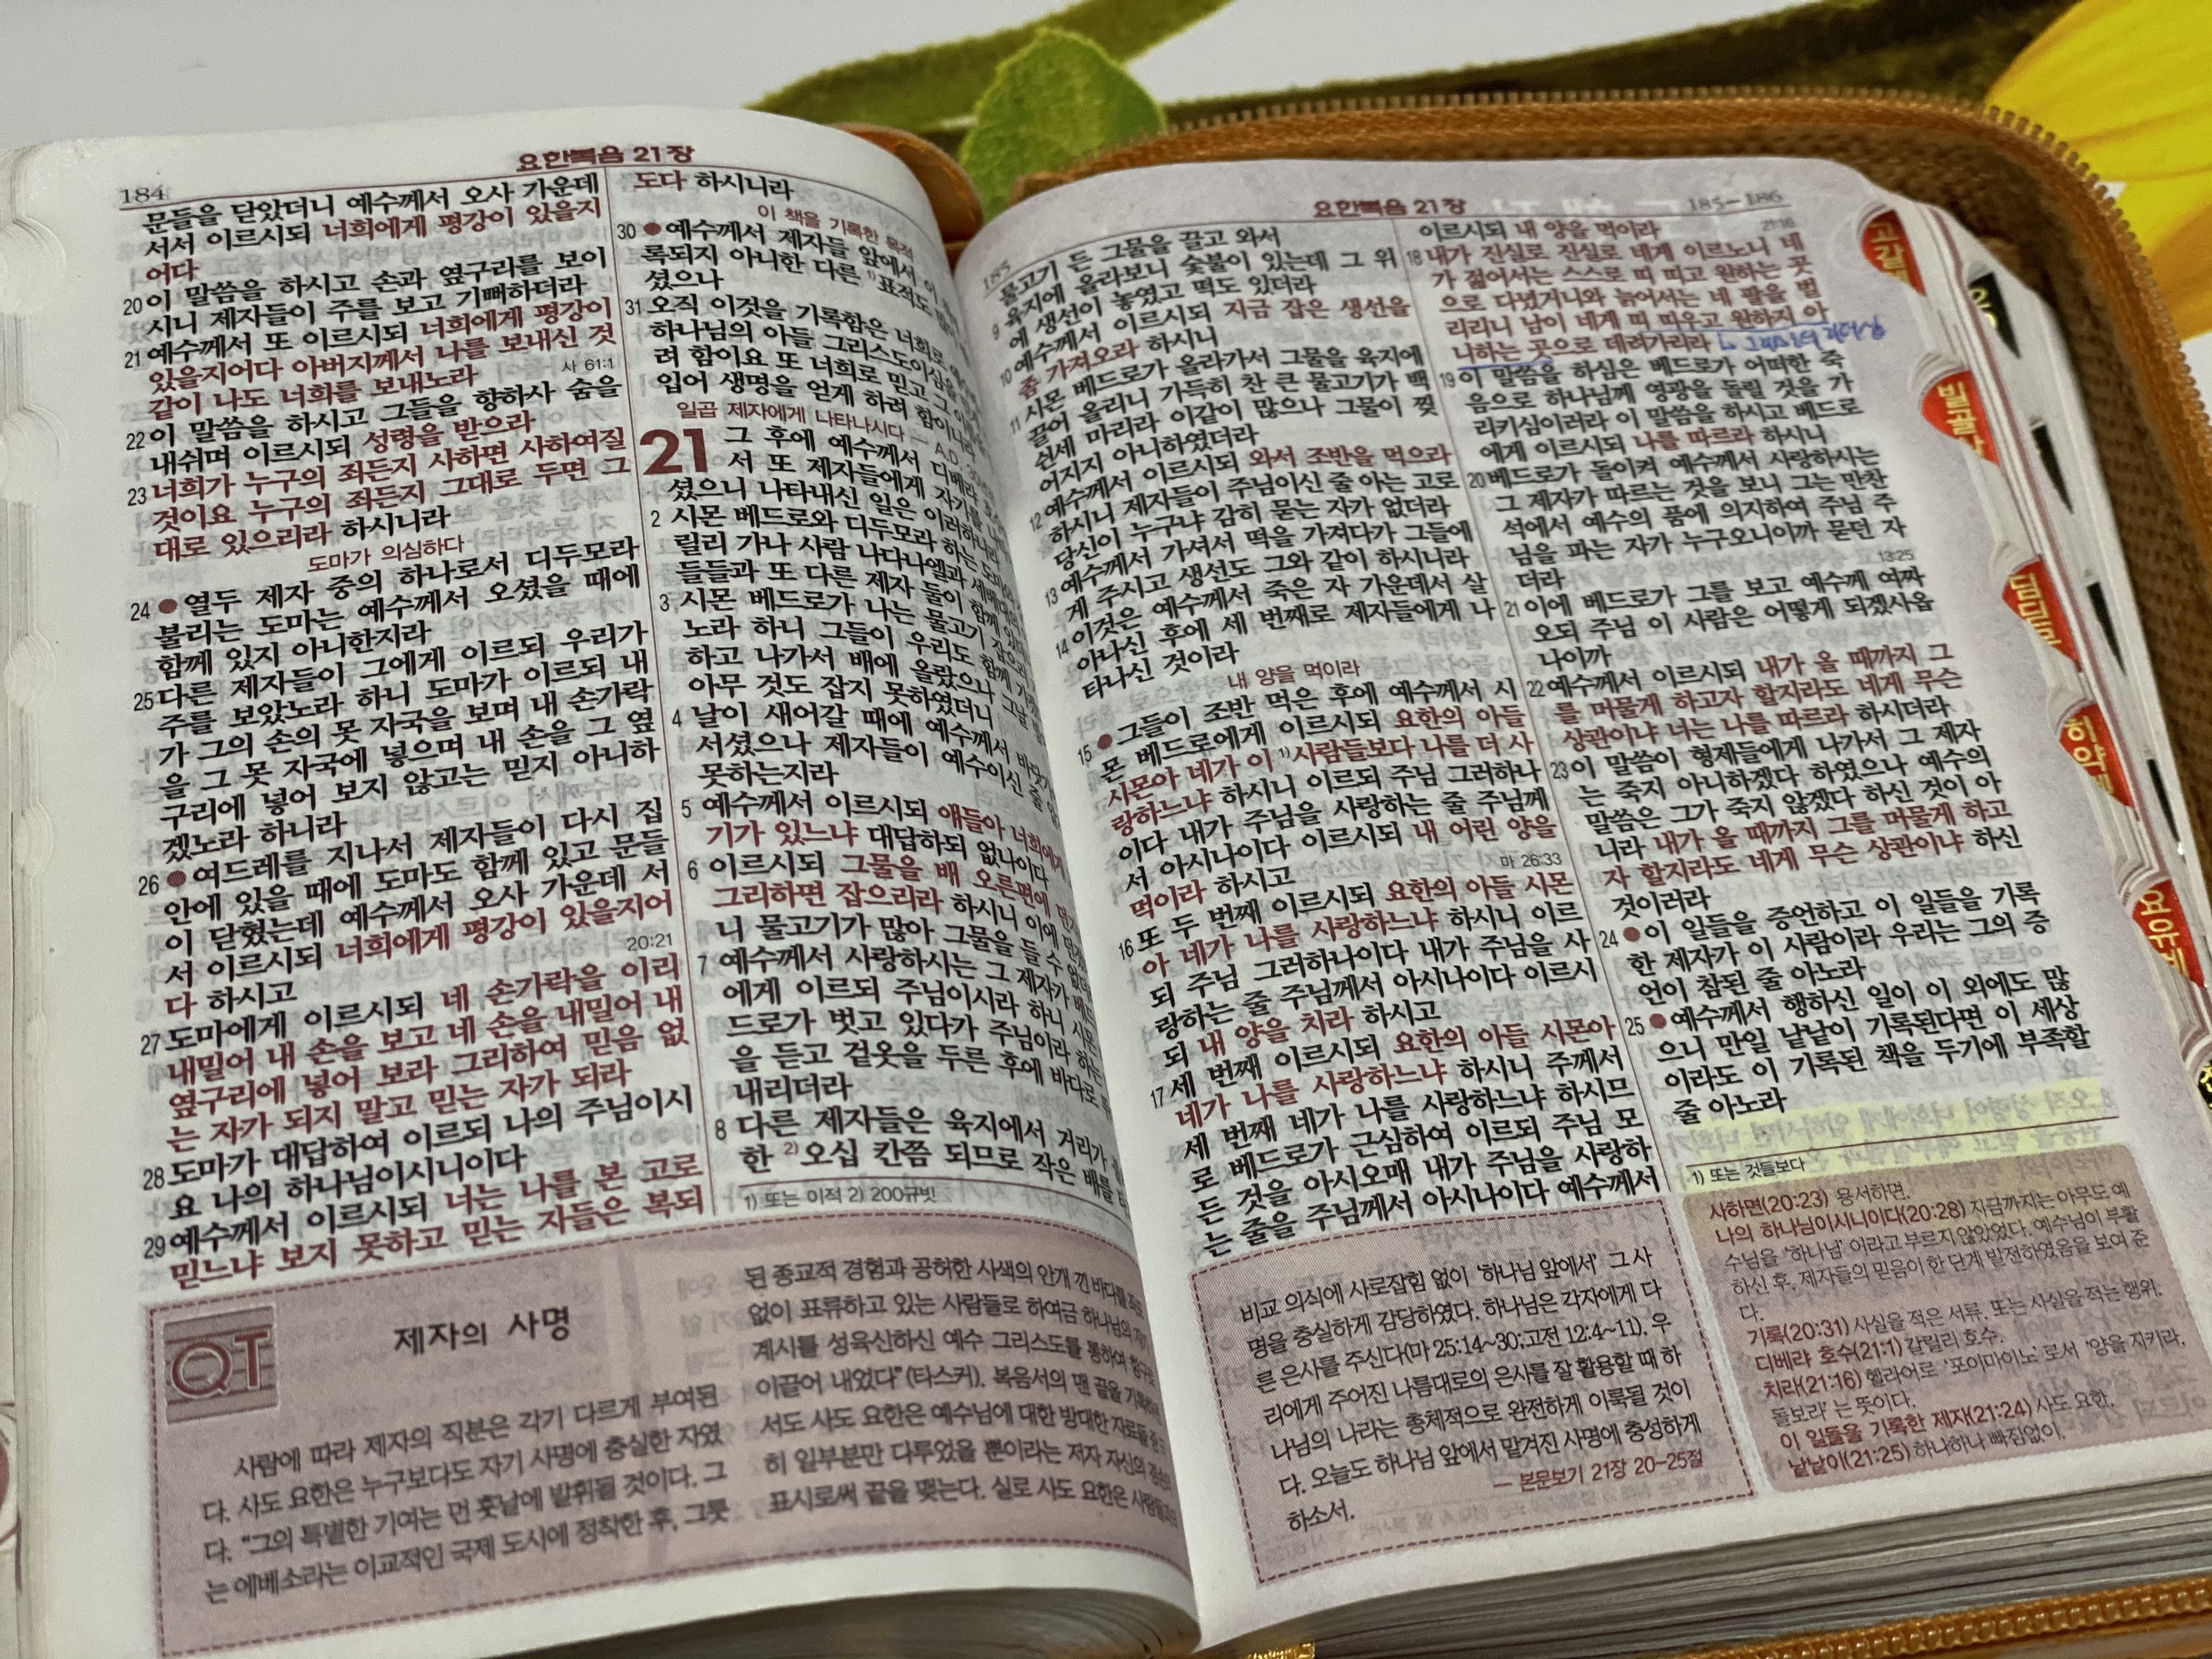 184
요한복음 21장
문들을 닫았더니 예수께서 오사 가운데
서서 이르시되 너희에게 평강이 있을지
어다
20 이 말씀을 하시고 손과 옆구리를 보이
시니 제자들이 주를 보고 기뻐하더라
21 예수께서 또 이르시되 너희에게 평강이
있을지어다 아버지께서 나를 보내신 것
같이 나도 너희를 보내노라
사 61:1
22 이 말씀을 하시고 그들을 향하사 숨을
내쉬며 이르시되 성령을 받으라
23 너희가 누구의 죄든지 사하면 사하여질
것이요 누구의 죄든지 그대로 두면 그
대로 있으리라 하시니라
도마가 의심하다
24 ●열두 제자 중의 하나로서 디두모라
불리는 도마는 예수께서 오셨을 때에
함께 있지 아니한지라
25 다른 제자들이 그에게 이르되 우리가
주를 보았노라 하니 도마가 이르되 내
가 그의 손의 못 자국을 보며 내 손가락
을 그 못 자국에 넣으며 내 손을 그 옆
구리에 넣어 보지 않고는 믿지 아니하
겠노라 하니라
26 ●여드레를 지나서 제자들이 다시 집
안에 있을 때에 도마도 함께 있고 문들
이 닫혔는데 예수께서 오사 가운데 서
서 이르시되 너희에게 평강이 있을지어
다 하시고
20:21
27 도마에게 이르시되 네 손가락을 이리
내밀어 내 손을 보고 네 손을 내밀어 내
옆구리에 넣어 보라 그리하여 믿음 없
는 자가 되지 말고 믿는 자가 되라
28 도마가 대답하여 이르되 나의 주님이시
요 나의 하나님이시니이다
29 예수께서 이르시되 너는 나를 본 고로
믿느냐 보지 못하고 믿는 자들은 복되
도다 하시니라
이 책을 기록한 목적
30 ●예수께서 제자들 앞에서 이
록되지 아니한 다른 1)표적도
셨으나
31 오직 이것을 기록함은 너희로
하나님의 아들 그리스도이심을
려 함이요 또 너희로 믿고 그 이
입어 생명을 얻게 하려 함이니라
일곱 제자에게 나타나시다 — A.D.
21 그 후에 예수께서 디베랴
서 또 제자들에게 자기를
셨으니 나타내신 일은 이러하니라
2 시몬 베드로와 디두모라 하는
릴리 가나 사람 나다나엘과 세베대의
들들과 또 다른 제자 둘이 함께
3 시몬 베드로가 나는 물고기 잡으러
노라 하니 그들이 우리도 함께
하고 나가서 배에 올랐으나 그날
아무 것도 잡지 못하였더니
4 날이 새어갈 때에 예수께서
서셨으나 제자들이 예수이신 줄
못하는지라
5 예수께서 이르시되 얘들아 너희에게
기가 있느냐 대답하되 없나이다
6 이르시되 그물을 배 오른편에
그리하면 잡으리라 하시니 이에
니 물고기가 많아 그물을 들 수
7 예수께서 사랑하시는 그 제자가
에게 이르되 주님이시라 하니 시몬
드로가 벗고 있다가 주님이라 하는
을 듣고 겉옷을 두른 후에 바다로
내리더라
8 다른 제자들은 육지에서 거리가
한 2)오십 칸쯤 되므로 작은 배를
1) 또는 이적 2) 200규빗
QT
제자의 사명
사람에 따라 제자의 직분은 각기 다르게 부여된
다. 사도 요한은 누구보다도 자기 사명에 충실한 자였
다. “그의 특별한 기여는 먼 훗날에 발휘될 것이다. 그
는 에베소라는 이교적인 국제 도시에 정착한 후, 그릇
된 종교적 경험과 공허한 사색의 안개 낀 바다를
없이 표류하고 있는 사람들로 하여금 하나님의
계시를 성육신하신 예수 그리스도를 통하여
이끌어 내었다”(타스커). 복음서의 맨 끝을
서도 사도 요한은 예수님에 대한 방대한 자료들
히 일부분만 다루었을 뿐이라는 저자 자신의
표시로써 끝을 맺는다. 실로 사도 요한은
185
요한복음 21장
185-186
물고기 든 그물을 끌고 와서
9 육지에 올라보니 숯불이 있는데 그 위
에 생선이 놓였고 떡도 있더라
10 예수께서 이르시되 지금 잡은 생선을
좀 가져오라 하시니
11 시몬 베드로가 올라가서 그물을 육지에
끌어 올리니 가득히 찬 큰 물고기가 백
쉰세 마리라 이같이 많으나 그물이 찢
어지지 아니하였더라
12 예수께서 이르시되 와서 조반을 먹으라
하시니 제자들이 주님이신 줄 아는 고로
당신이 누구냐 감히 묻는 자가 없더라
13 예수께서 가셔서 떡을 가져다가 그들에
게 주시고 생선도 그와 같이 하시니라
14 이것은 예수께서 죽은 자 가운데서 살
아나신 후에 세 번째로 제자들에게 나
타나신 것이라
내 양을 먹이라
15 ●그들이 조반 먹은 후에 예수께서 시
몬 베드로에게 이르시되 요한의 아들
시몬아 네가 이 1)사람들보다 나를 더 사
랑하느냐 하시니 이르되 주님 그러하나
이다 내가 주님을 사랑하는 줄 주님께
서 아시나이다 이르시되 내 어린 양을
먹이라 하시고
마 26:33
16 또 두 번째 이르시되 요한의 아들 시몬
아 네가 나를 사랑하느냐 하시니 이르
되 주님 그러하나이다 내가 주님을 사
랑하는 줄 주님께서 아시나이다 이르시
되 내 양을 치라 하시고
17 세 번째 이르시되 요한의 아들 시몬아
네가 나를 사랑하느냐 하시니 주께서
세 번째 네가 나를 사랑하느냐 하시므
로 베드로가 근심하여 이르되 주님 모
든 것을 아시오매 내가 주님을 사랑하
는 줄을 주님께서 아시나이다 예수께서
이르시되 내 양을 먹이라
21:16
18 내가 진실로 진실로 네게 이르노니 네
가 젊어서는 스스로 띠 띠고 원하는 곳
으로 다녔거니와 늙어서는 네 팔을 벌
리리니 남이 네게 띠 띠우고 원하지 아
니하는 곳으로 데려가리라
19 이 말씀을 하심은 베드로가 어떠한 죽
음으로 하나님께 영광을 돌릴 것을 가
리키심이러라 이 말씀을 하시고 베드로
에게 이르시되 나를 따르라 하시니
20 베드로가 돌이켜 예수께서 사랑하시는
그 제자가 따르는 것을 보니 그는 만찬
석에서 예수의 품에 의지하여 주님 주
님을 파는 자가 누구오니이까 묻던 자
더라
13:25
21 이에 베드로가 그를 보고 예수께 여짜
오되 주님 이 사람은 어떻게 되겠사옵
나이까
22 예수께서 이르시되 내가 올 때까지 그
를 머물게 하고자 할지라도 네게 무슨
상관이냐 너는 나를 따르라 하시더라
23 이 말씀이 형제들에게 나가서 그 제자
는 죽지 아니하겠다 하였으나 예수의
말씀은 그가 죽지 않겠다 하신 것이 아
니라 내가 올 때까지 그를 머물게 하고
자 할지라도 네게 무슨 상관이냐 하신
것이러라
24 ●이 일들을 증언하고 이 일들을 기록
한 제자가 이 사람이라 우리는 그의 증
언이 참된 줄 아노라
25 ●예수께서 행하신 일이 이 외에도 많
으니 만일 낱낱이 기록된다면 이 세상
이라도 이 기록된 책을 두기에 부족할
줄 아노라
1) 또는 것들보다
비교 의식에 사로잡힘 없이 ‘하나님 앞에서’ 그 사
명을 충실하게 감당하였다. 하나님은 각자에게 다
른 은사를 주신다(마 25:14~30;고전 12:4~11). 우
리에게 주어진 나름대로의 은사를 잘 활용할 때 하
나님의 나라는 총체적으로 완전하게 이룩될 것이
다. 오늘도 하나님 앞에서 맡겨진 사명에 충성하게
하소서.
— 본문보기 21장 20-25절
사하면(20:23) 용서하면.
나의 하나님이시니이다(20:28) 지금까지는 아무도 예
수님을 ‘하나님’ 이라고 부르지 않았었다. 예수님이 부활
하신 후, 제자들의 믿음이 한 단계 발전하였음을 보여 준
다.
기록(20:31) 사실을 적은 서류. 또는 사실을 적는 행위.
디베랴 호수(21:1) 갈릴리 호수.
치라(21:16) 헬라어로 ‘포이마이노’ 로서 ‘양을 지키라,
돌보라’ 는 뜻이다.
이 일들을 기록한 제자(21:24) 사도 요한.
낱낱이(21:25) 하나하나 빠짐없이.